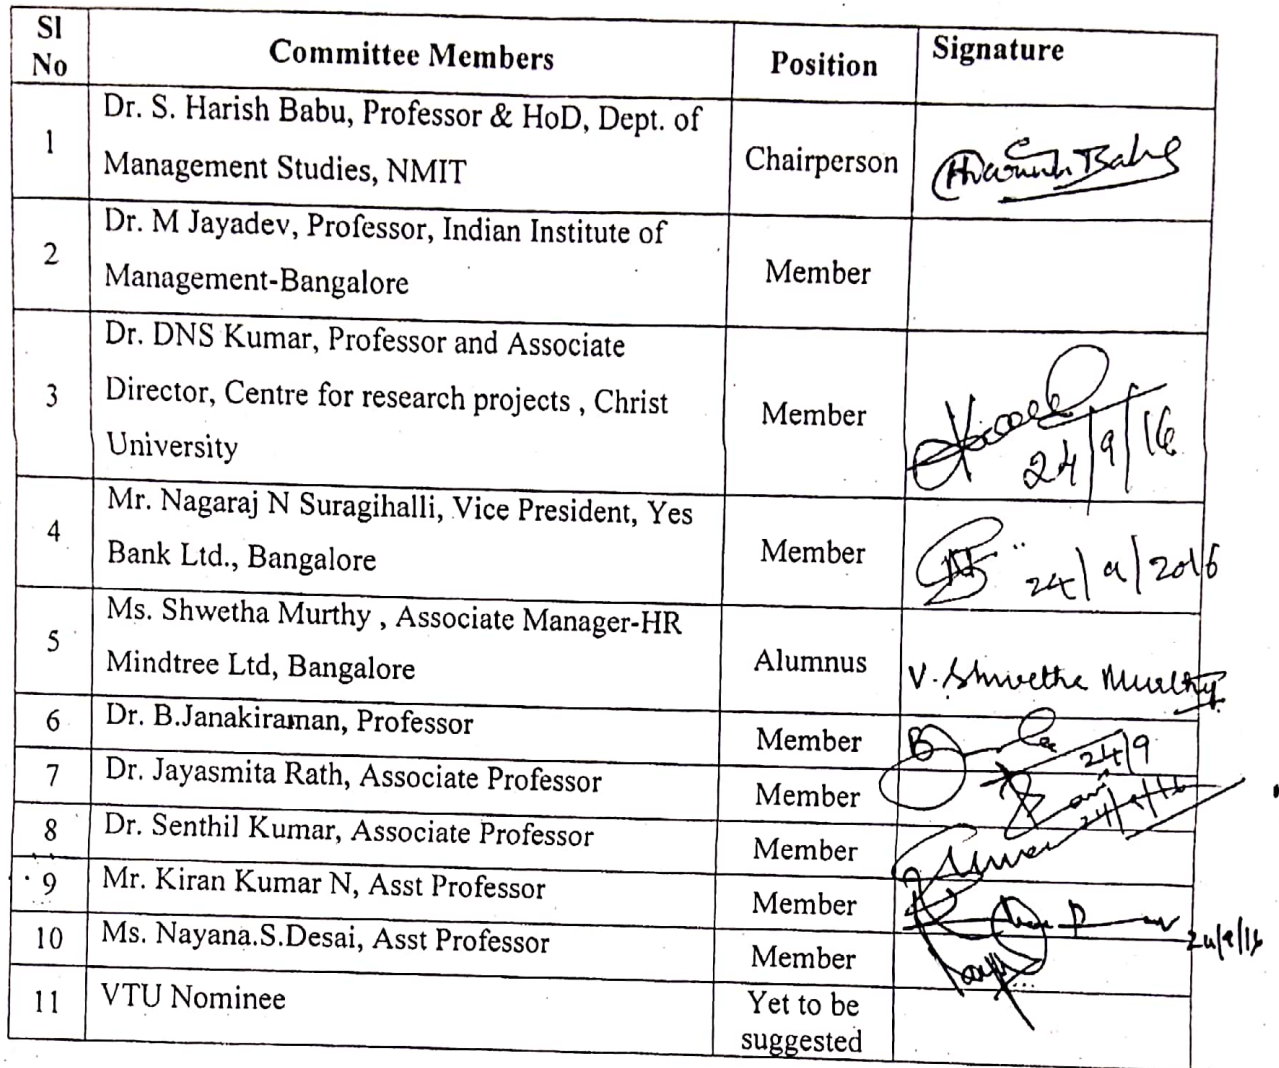 Sl No Committee Members Position Signature
1 Dr. S. Harish Babu, Professor & HoD, Dept. of
Management Studies, NMIT Chairperson Harish Babu
2 Dr. M Jayadev, Professor, Indian Institute of
Management-Bangalore Member
3 Dr. DNS Kumar, Professor and Associate
Director, Centre for research projects , Christ
University Member 24/9/16
4 Mr. Nagaraj N Suragihalli, Vice President, Yes
Bank Ltd., Bangalore Member 24/9/2016
5 Ms. Shwetha Murthy , Associate Manager-HR
Mindtree Ltd, Bangalore Alumnus V. Shwetha Murthy
6 Dr. B.Janakiraman, Professor Member 24/9
7 Dr. Jayasmita Rath, Associate Professor Member 24/9/16
8 Dr. Senthil Kumar, Associate Professor Member
9 Mr. Kiran Kumar N, Asst Professor Member 24/9/16
10 Ms. Nayana.S.Desai, Asst Professor Member
11 VTU Nominee Yet to be
suggested